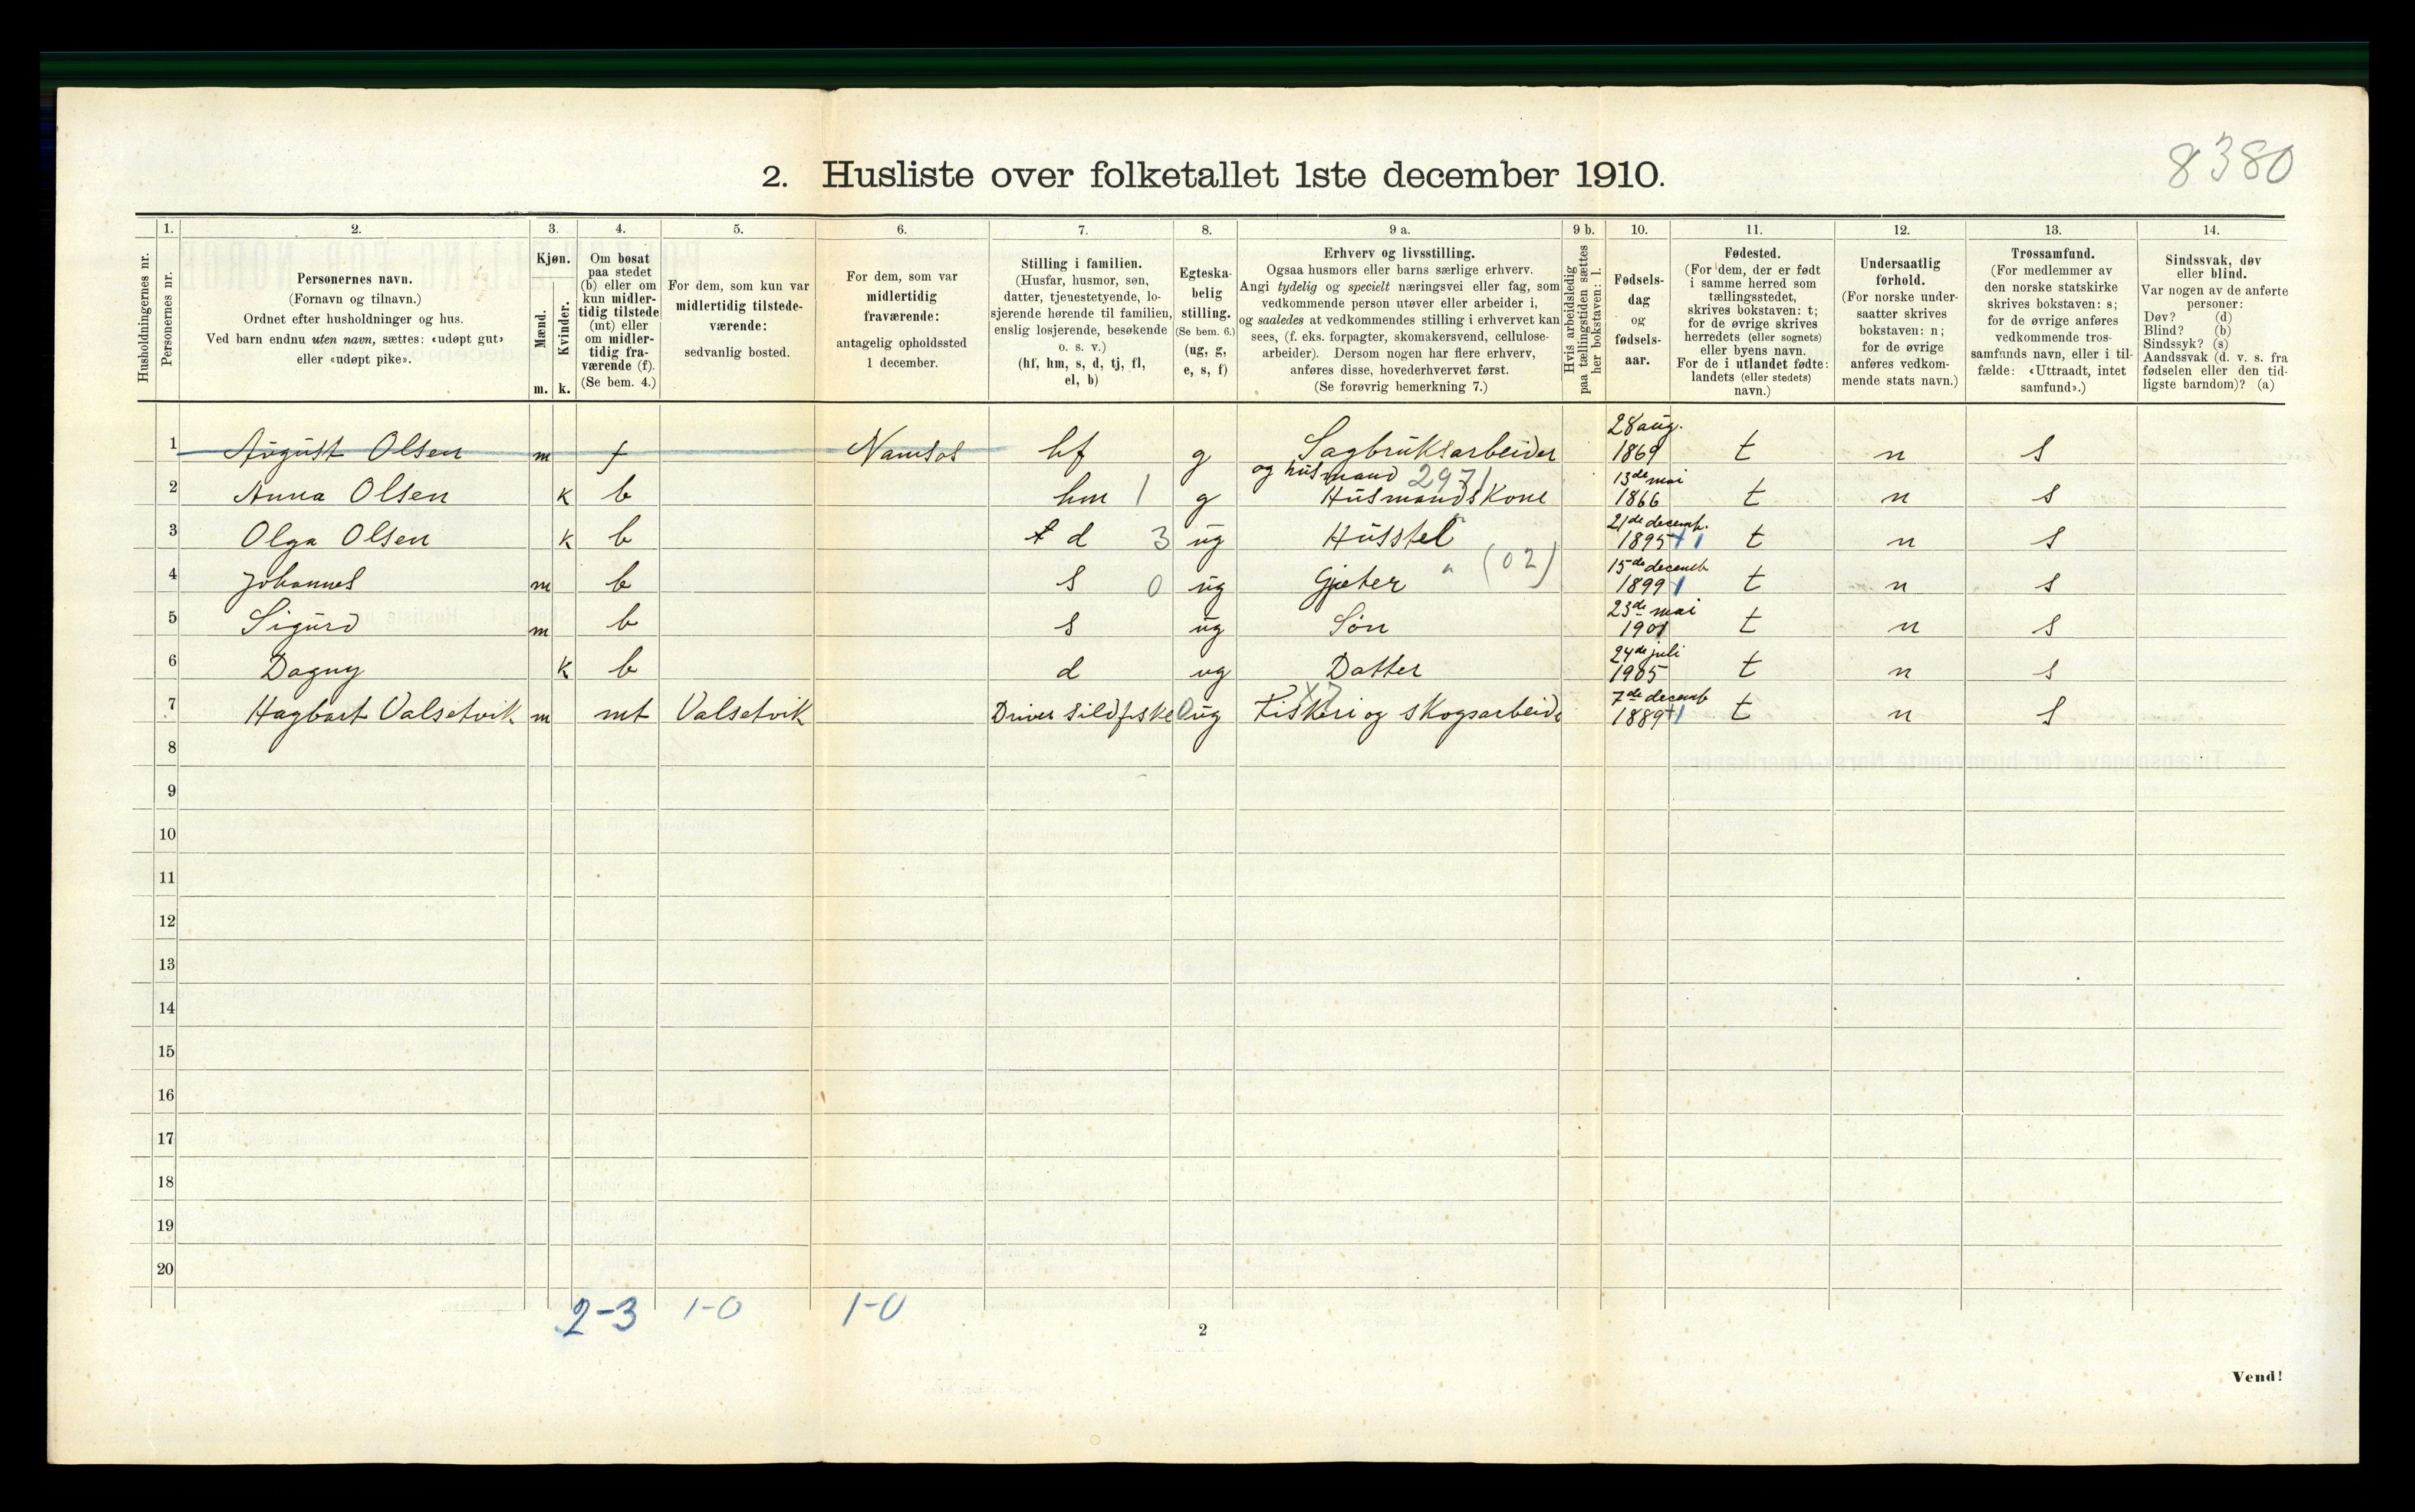 8380
2. Husliste over folketallet 1ste december 1910.
1. 2. 3. 4. 5. 6. 7. 8. 9 a. 9 b. 10. 11. 12. 13. 14.
Husholdningernes nr.
Personernes nr.
Personernes navn.
(Fornavn og tilnavn.)
Ordnet efter husholdninger og hus.
Ved barn endnu uten navn, sættes: «udøpt gut»
eller «udøpt pike».
Kjøn.
Mænd.
Kvinder.
m. k.
Om bosat
paa stedet
(b) eller om
kun midler-
tidig tilstede
(mt) eller
om midler-
tidig fra-
værende (f).
(Se bem. 4.)
For dem, som kun var
midlertidig tilstede-
værende:
sedvanlig bosted.
For dem, som var
midlertidig
fraværende:
antagelig opholdssted
1 december.
Stilling i familien.
(Husfar, husmor, søn,
datter, tjenestetyende, lo-
sjerende hørende til familien,
enslig losjerende, besøkende
o. s. v.)
(hf, hm, s, d, tj, fl,
el, b)
Egteska-
belig
stilling.
(Se bem. 6.)
(ug, g,
e, s, f)
Erhverv og livsstilling.
Ogsaa husmors eller barns særlige erhverv.
Angi tydelig og specielt næringsvei eller fag, som
vedkommende person utøver eller arbeider i,
og saaledes at vedkommendes stilling i erhvervet kan
sees, (f. eks. forpagter, skomakersvend, cellulose-
arbeider). Dersom nogen har flere erhverv,
anføres disse, hovederhvervet først.
(Se forøvrig bemerkning 7.)
Hvis arbeidsledig
paa tællingstiden sættes
her bokstaven: l.
Fødsels-
dag
og
fødsels-
aar.
Fødested.
(For dem, der er født
i samme herred som
tællingsstedet,
skrives bokstaven: t;
for de øvrige skrives
herredets (eller sognets)
eller byens navn.
For de i utlandet fødte:
landets (eller stedets)
navn.)
Undersaatlig
forhold.
(For norske under-
saatter skrives
bokstaven: n;
for de øvrige
anføres vedkom-
mende stats navn.)
Trossamfund.
(For medlemmer av
den norske statskirke
skrives bokstaven: s;
for de øvrige anføres
vedkommende tros-
samfunds navn, eller i til-
fælde: «Uttraadt, intet
samfund».)
Sindssvak, døv
eller blind.
Var nogen av de anførte
personer:
Døv? (d)
Blind? (b)
Sindssyk? (s)
Aandssvak (d. v. s. fra
fødselen eller den tid-
ligste barndom)? (a)
28 aug.
1 August Olsen m f Namsos hf g Sagbruksarbeider 1869 t n s
og husmand 2971 13de mai
2 Anna Olsen k b hm 1 g Husmandskone 1866 t n s
21de decemb.
3 Olga Olsen k b d 3 ug Husstel 1895 t n s
(02) 15de decemb
4 Johannes m b s 0 ug Gjeter 1899 t n s
23de mai
5 Sigurd m b s ug Søn 1901 t n s
24de juli
6 Dagny k b d ug Datter 1905 t n s
7de decemb
7 Hagbart Valsetvik m mt Valsetvik Driver sildfiske 0 ug Fiskeri og skogsarbeide 1889 t n s
8
9
10
11
12
13
14
15
16
17
18
19
20
2-3 1-0 1-0
2
Vend!